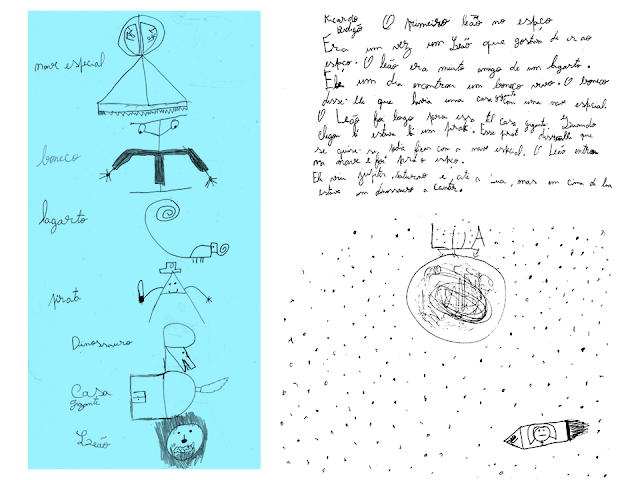 nave espcial
boneco
lagarto
pirata
Dinossauro
Casa
gigante
Leão
Ricardo
O primeiro leão no espço
Era um vez um Leão que gostava de ir ao
espço. O leão era muito amigo de um lagarto.
Ele um dia encontrou um boneco vivo. O boneco
disse-lhe que havia uma casa gigante com uma nave espcial.
O Leão foi logo para essa tal casa gigante. Quando
chegou lá estava lá um pirata. Esse pirata disse-lhe que
se quisesse podia ficar com a nave espcial. O Leão entrou
na nave e foi para o espço.
Ele viu Jupiter, saturno e, até a Lua, mas em cima da lua
estava um dinossauro a cantar.
LUA